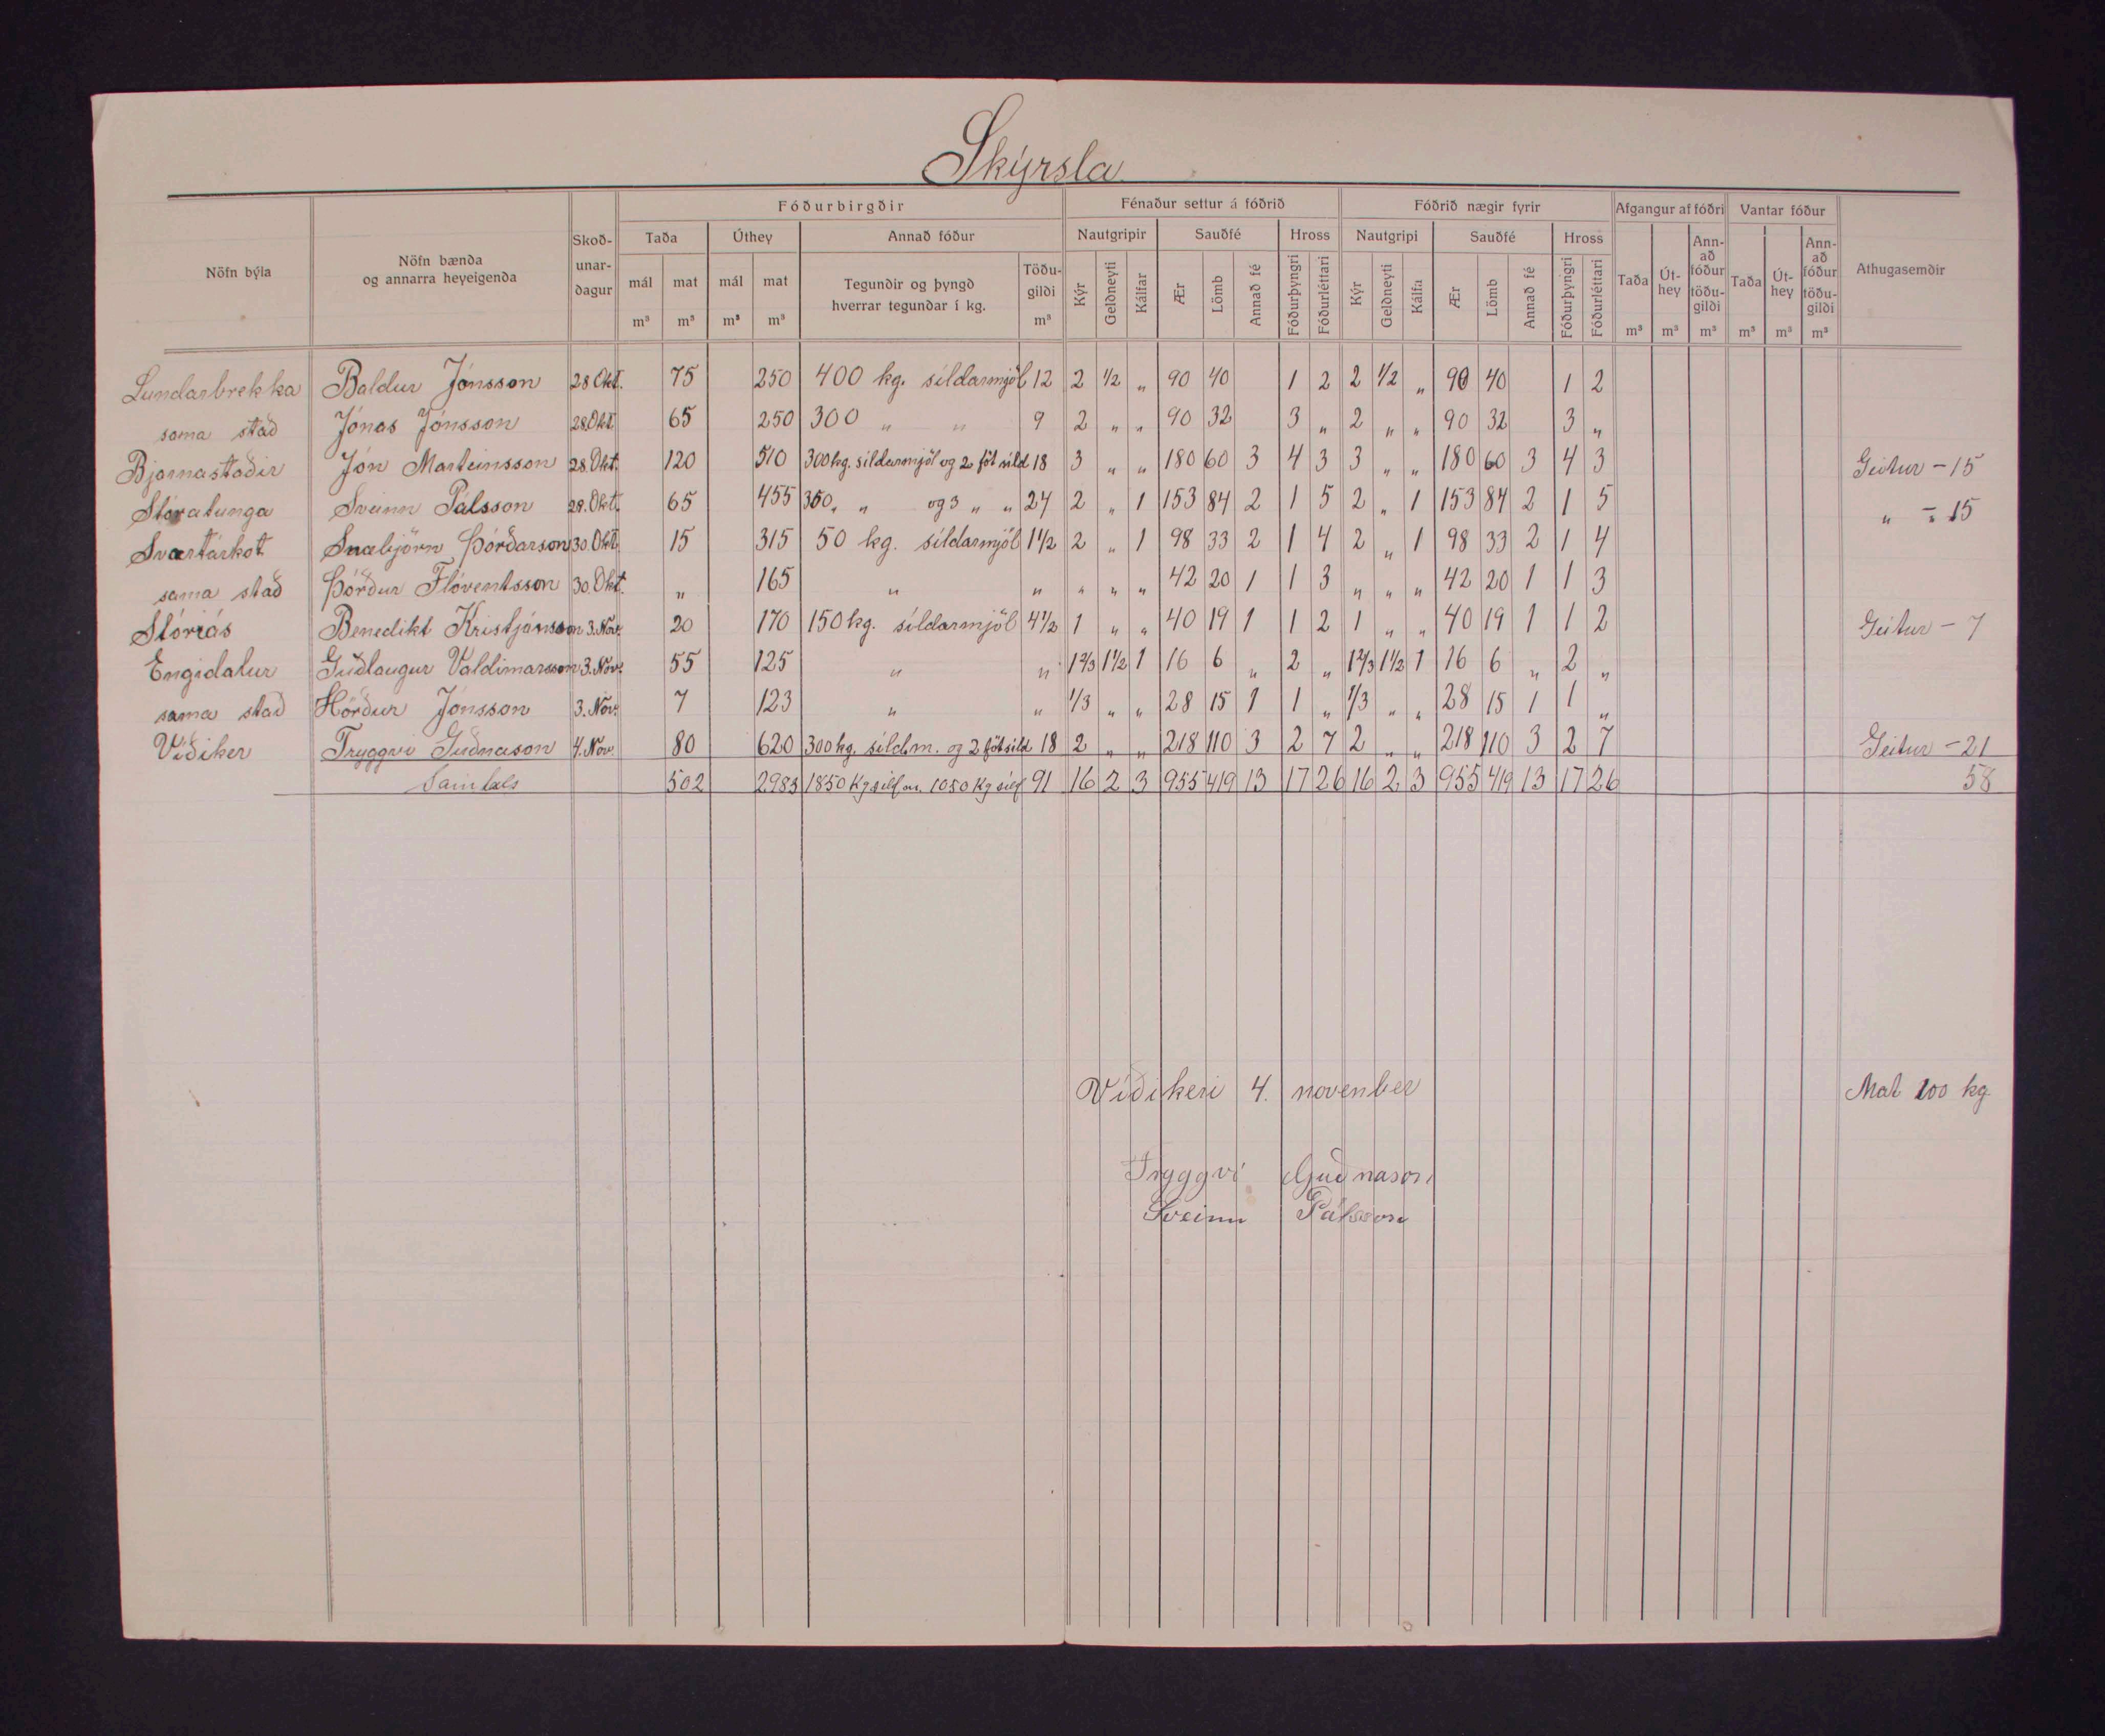 Skýrsla
Nöfn býla | Nöfn bænda og annarra heyeigenda | Skoð-unar-dagur | Fóðurbirgðir | Fénaður settur á fóðrið | Fóðrið nægir fyrir | Afgangur af fóðri | Vantar fóður | Athugasemdir
Taða | Úthey | Annað fóður | Nautgripir | Sauðfé | Hross | Nautgripi | Sauðfé | Hross
mál m³ | mat m³ | mál m³ | mat m³ | Tegundir og þyngd hverrar tegundar í kg. | Töðu-gildi m³ | Kýr | Geldneyti | Kálfar | Ær | Lömb | Annað fé | Fóðurþyngri | Fóðurléttari | Kýr | Geldneyti | Kálfa | Ær | Lömb | Annað fé | Fóðurþyngri | Fóðurléttari | Taða m³ | Út-hey m³ | Ann-að fóður töðu-gildi m³ | Taða m³ | Út-hey m³ | Ann-að fóður töðu-gildi m³
Lundarbrekka | Baldur Jónsson | 28 Okt. | 75 | 250 | 400 kg. síldarmjöl | 12 | 2 | 1/2 | " | 90 | 40 | 1 | 2 | 2 | 1/2 | " | 90 | 40 | 1 | 2
sama stað | Jónas Jónsson | 28. Okt. | 65 | 250 | 300 " " | 9 | 2 | " | " | 90 | 32 | 3 | " | 2 | " | " | 90 | 32 | 3 | "
Bjarnastaðir | Jón Marteinsson | 28. Okt. | 120 | 510 | 300 kg. síldarmjöl og 2 föt síld | 18 | 3 | " | " | 180 | 60 | 3 | 4 | 3 | 3 | " | " | 180 | 60 | 3 | 4 | 3 | Geitur - 15
Stóratunga | Sveinn Pálsson | 28. Okt. | 65 | 455 | 350 " " og 3 " " | 24 | 2 | " | 1 | 153 | 84 | 2 | 1 | 5 | 2 | " | 1 | 153 | 84 | 2 | 1 | 5 | " - 15
Svartárkot | Snæbjörn Þórðarson | 30. Okt. | 15 | 315 | 50 kg. síldarmjöl | 1 1/2 | 2 | " | 1 | 98 | 33 | 2 | 1 | 4 | 2 | " | 1 | 98 | 33 | 2 | 1 | 4
sama stað | Þórður Flóventsson | 30. Okt. | " | 165 | " | " | " | " | " | 42 | 20 | 1 | 1 | 3 | " | " | " | 42 | 20 | 1 | 1 | 3
Stóriás | Benedikt Kristjánsson | 3. Nóv. | 20 | 170 | 150 kg. síldarmjöl | 4 1/2 | 1 | " | " | 40 | 19 | 1 | 1 | 2 | 1 | " | " | 40 | 19 | 1 | 1 | 2 | Geitur - 7
Engidalur | Guðlaugur Valdimarsson | 3. Nóv. | 55 | 125 | " | " | 1 2/3 | 1 1/2 | 1 | 16 | 6 | " | 2 | " | 1 2/3 | 1 1/2 | 1 | 16 | 6 | " | 2 | "
sama stað | Hörður Jónsson | 3. Nóv. | 7 | 123 | " | " | 1/3 | " | " | 28 | 15 | 1 | 1 | " | 1/3 | " | " | 28 | 15 | 1 | 1 | "
Víðiker | Tryggvi Guðnason | 4. Nóv. | 80 | 620 | 300 kg. síld.m. og 2 föt síld | 18 | 2 | " | " | 218 | 110 | 3 | 2 | 7 | 2 | " | " | 218 | 110 | 3 | 2 | 7 | Geitur - 21
Samtals | 502 | 2983 | 1850 Kg síld.m. 1050 Kg síld | 91 | 16 | 2 | 3 | 955 | 419 | 13 | 17 | 26 | 16 | 2 | 3 | 955 | 419 | 13 | 17 | 26 | 58
Víðikeri 4. november | Mat 200 kg
Tryggvi Guðnason
Sveinn Pálsson